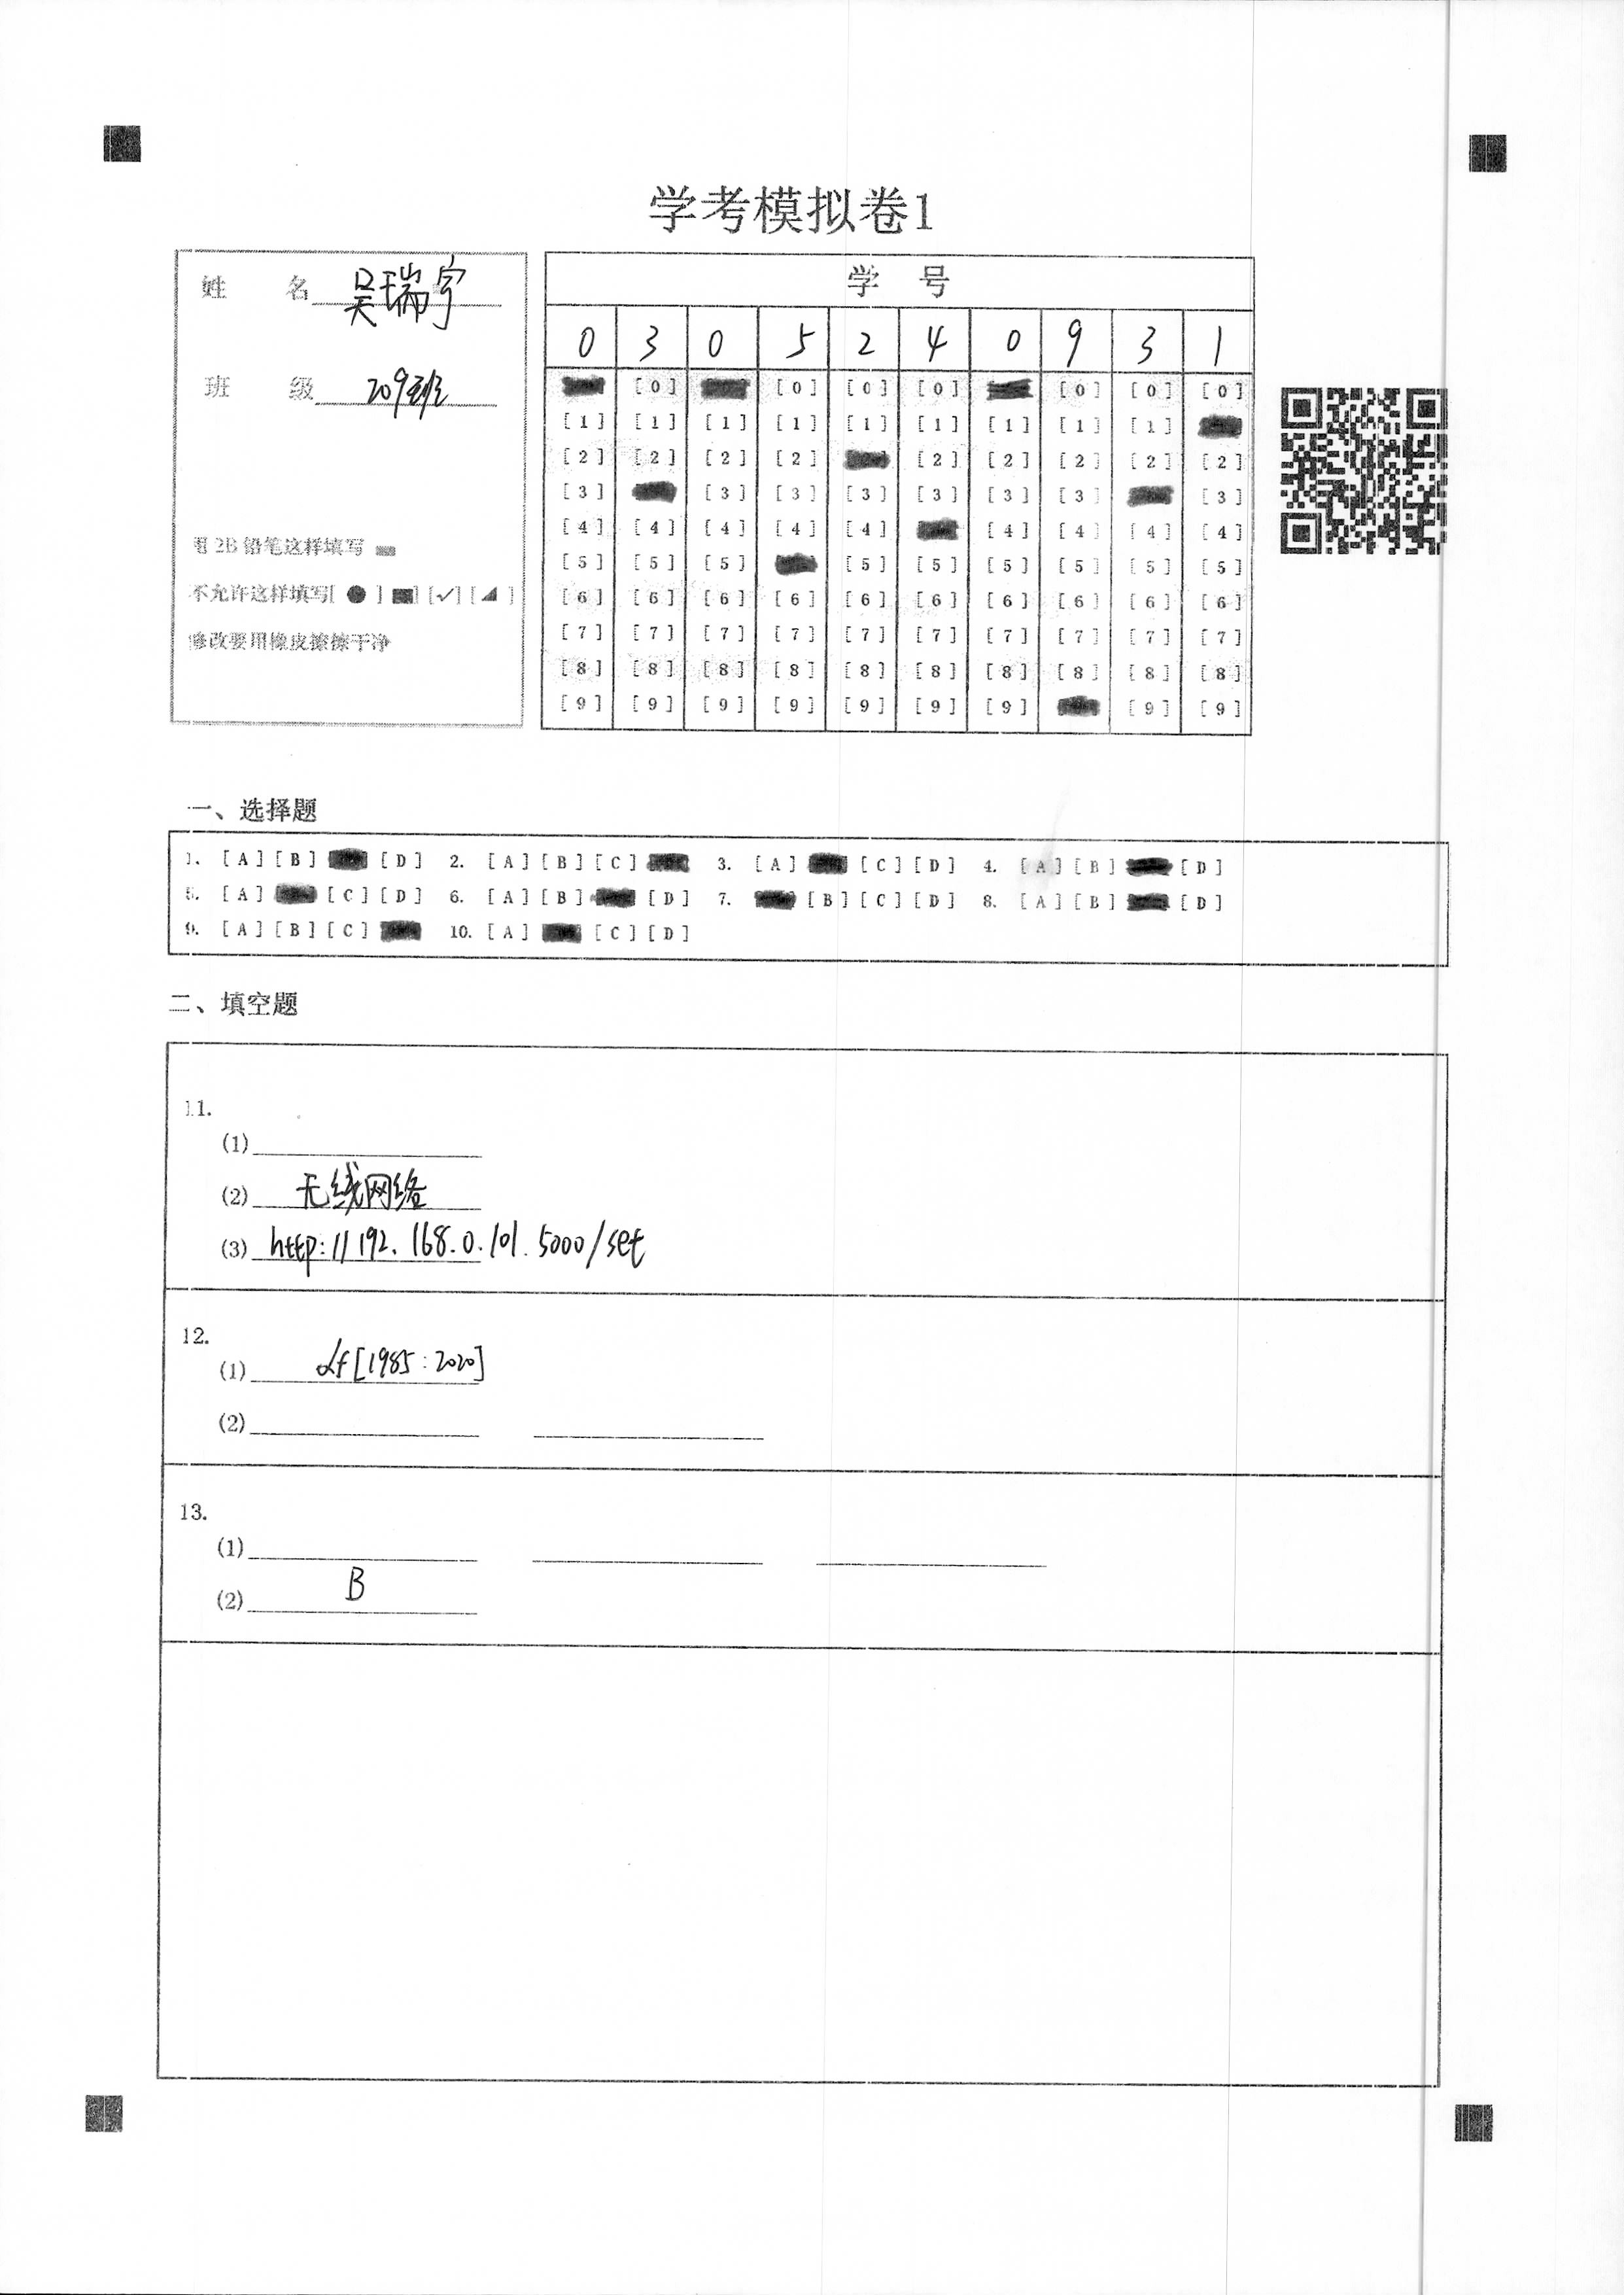 学考模拟卷1
姓 名 吴瑞宇
班 级 209班
用 2B 铅笔这样填写
不允许这样填写[ ● ] [■] [✓] [◢ ]
修改要用橡皮擦擦干净
学 号
0 3 0 5 2 4 0 9 3 1
[0] [0] [0] [0] [0] [0] [0]
[1] [1] [1] [1] [1] [1] [1] [1] [1]
[2] [2] [2] [2] [2] [2] [2] [2] [2]
[3] [3] [3] [3] [3] [3] [3] [3]
[4] [4] [4] [4] [4] [4] [4] [4] [4]
[5] [5] [5] [5] [5] [5] [5] [5] [5]
[6] [6] [6] [6] [6] [6] [6] [6] [6] [6]
[7] [7] [7] [7] [7] [7] [7] [7] [7] [7]
[8] [8] [8] [8] [8] [8] [8] [8] [8] [8]
[9] [9] [9] [9] [9] [9] [9] [9] [9]
一、选择题
1. [A] [B] [D] 2. [A] [B] [C] 3. [A] [C] [D] 4. [A] [B] [D]
5. [A] [C] [D] 6. [A] [B] [D] 7. [B] [C] [D] 8. [A] [B] [D]
9. [A] [B] [C] 10. [A] [C] [D]
二、填空题
11.
(1)
(2) 无线网络
(3) http://192.168.0.101.5000/set
12.
(1) df[1985:2020]
(2)
13.
(1)
(2) B